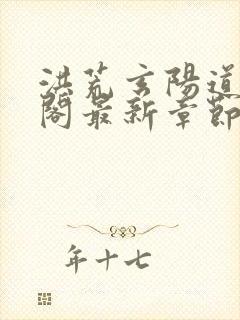 洪荒玄陽道
閣最新章節
年十七